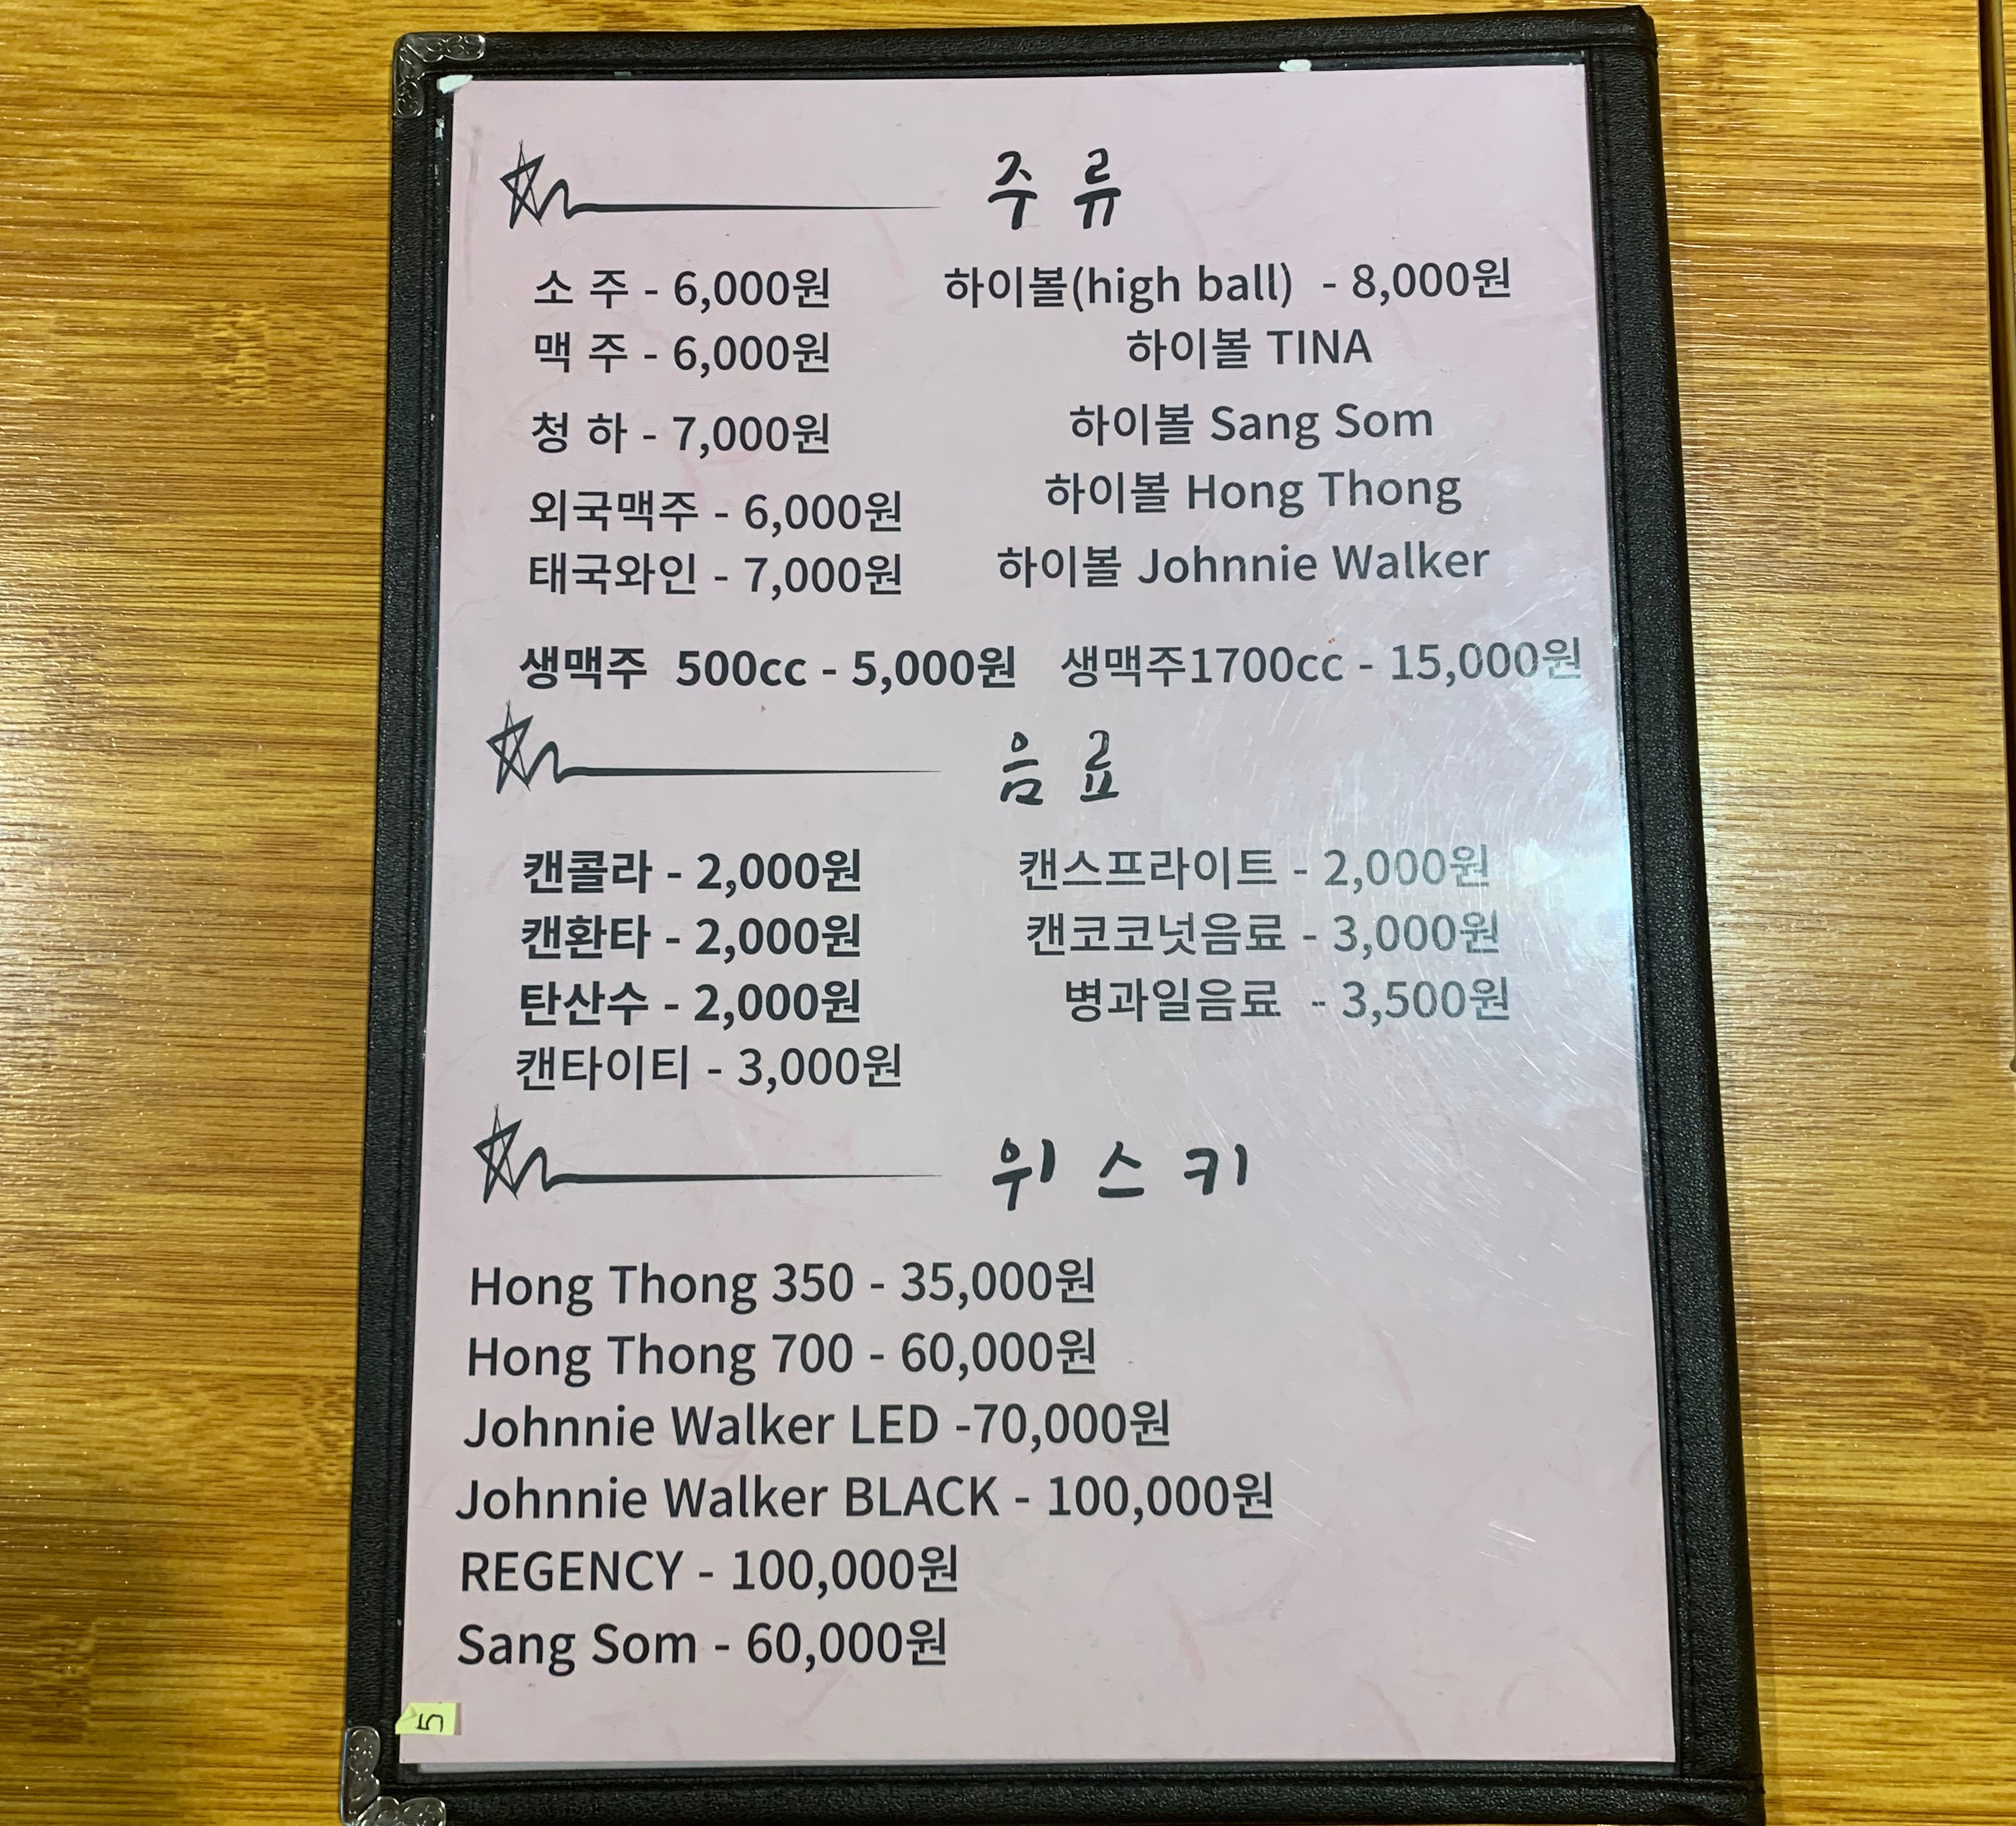 주 류
소 주 - 6,000원
맥 주 - 6,000원
청 하 - 7,000원
외국맥주 - 6,000원
태국와인 - 7,000원
하이볼(high ball) - 8,000원
하이볼 TINA
하이볼 Sang Som
하이볼 Hong Thong
하이볼 Johnnie Walker
생맥주 500cc - 5,000원 생맥주1700cc - 15,000원
음 료
캔콜라 - 2,000원
캔환타 - 2,000원
탄산수 - 2,000원
캔타이티 - 3,000원
캔스프라이트 - 2,000원
캔코코넛음료 - 3,000원
병과일음료 - 3,500원
위 스 키
Hong Thong 350 - 35,000원
Hong Thong 700 - 60,000원
Johnnie Walker LED -70,000원
Johnnie Walker BLACK - 100,000원
REGENCY - 100,000원
Sang Som - 60,000원
5